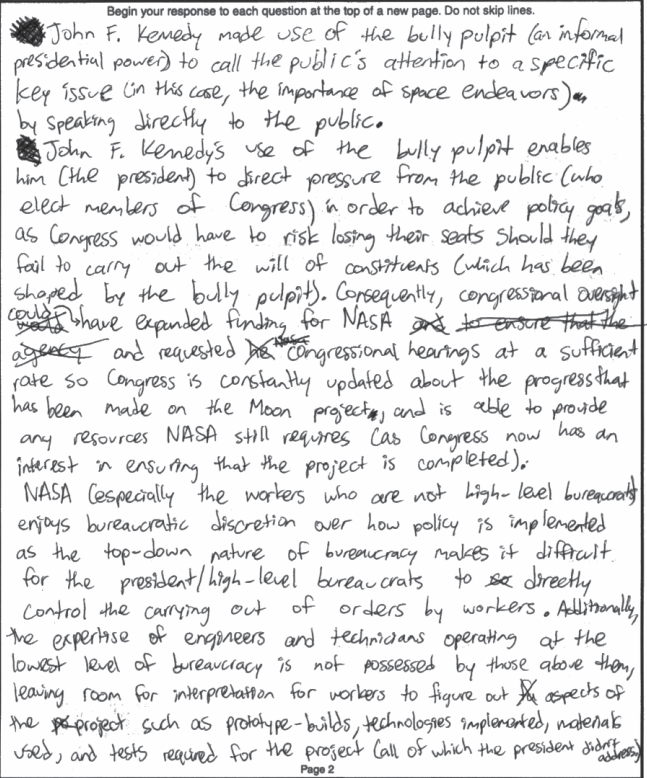 Begin your response to each question at the top of a new page. Do not skip lines.
John F. Kennedy made use of the bully pulpit (an informal
presidential power) to call the public's attention to a specific
key issue (in this case, the importance of space endeavors)
by speaking directly to the public.
John F. Kennedy's use of the bully pulpit enables
him (the president) to direct pressure from the public (who
elect members of Congress) in order to achieve policy goals,
as Congress would have to risk losing their seats should they
fail to carry out the will of constituents (which has been
shaped by the bully pulpit). Consequently, congressional oversight
could have expanded funding for NASA and to ensure that the
agency and requested NASA congressional hearings at a sufficient
rate so Congress is constantly updated about the progress that
has been made on the Moon project, and is able to provide
any resources NASA still requires (as Congress now has an
interest in ensuring that the project is completed).
NASA (especially the workers who are not high-level bureaucrats)
enjoys bureaucratic discretion over how policy is implemented
as the top-down nature of bureaucracy makes it difficult
for the president/high-level bureaucrats to directly
control the carrying out of orders by workers. Additionally,
the expertise of engineers and technicians operating at the
lowest level of bureaucracy is not possessed by those above them,
leaving room for interpretation for workers to figure out aspects of
the project such as prototype-builds, technologies implemented, materials
used, and tests required for the project (all of which the president didn't
address)
Page 2